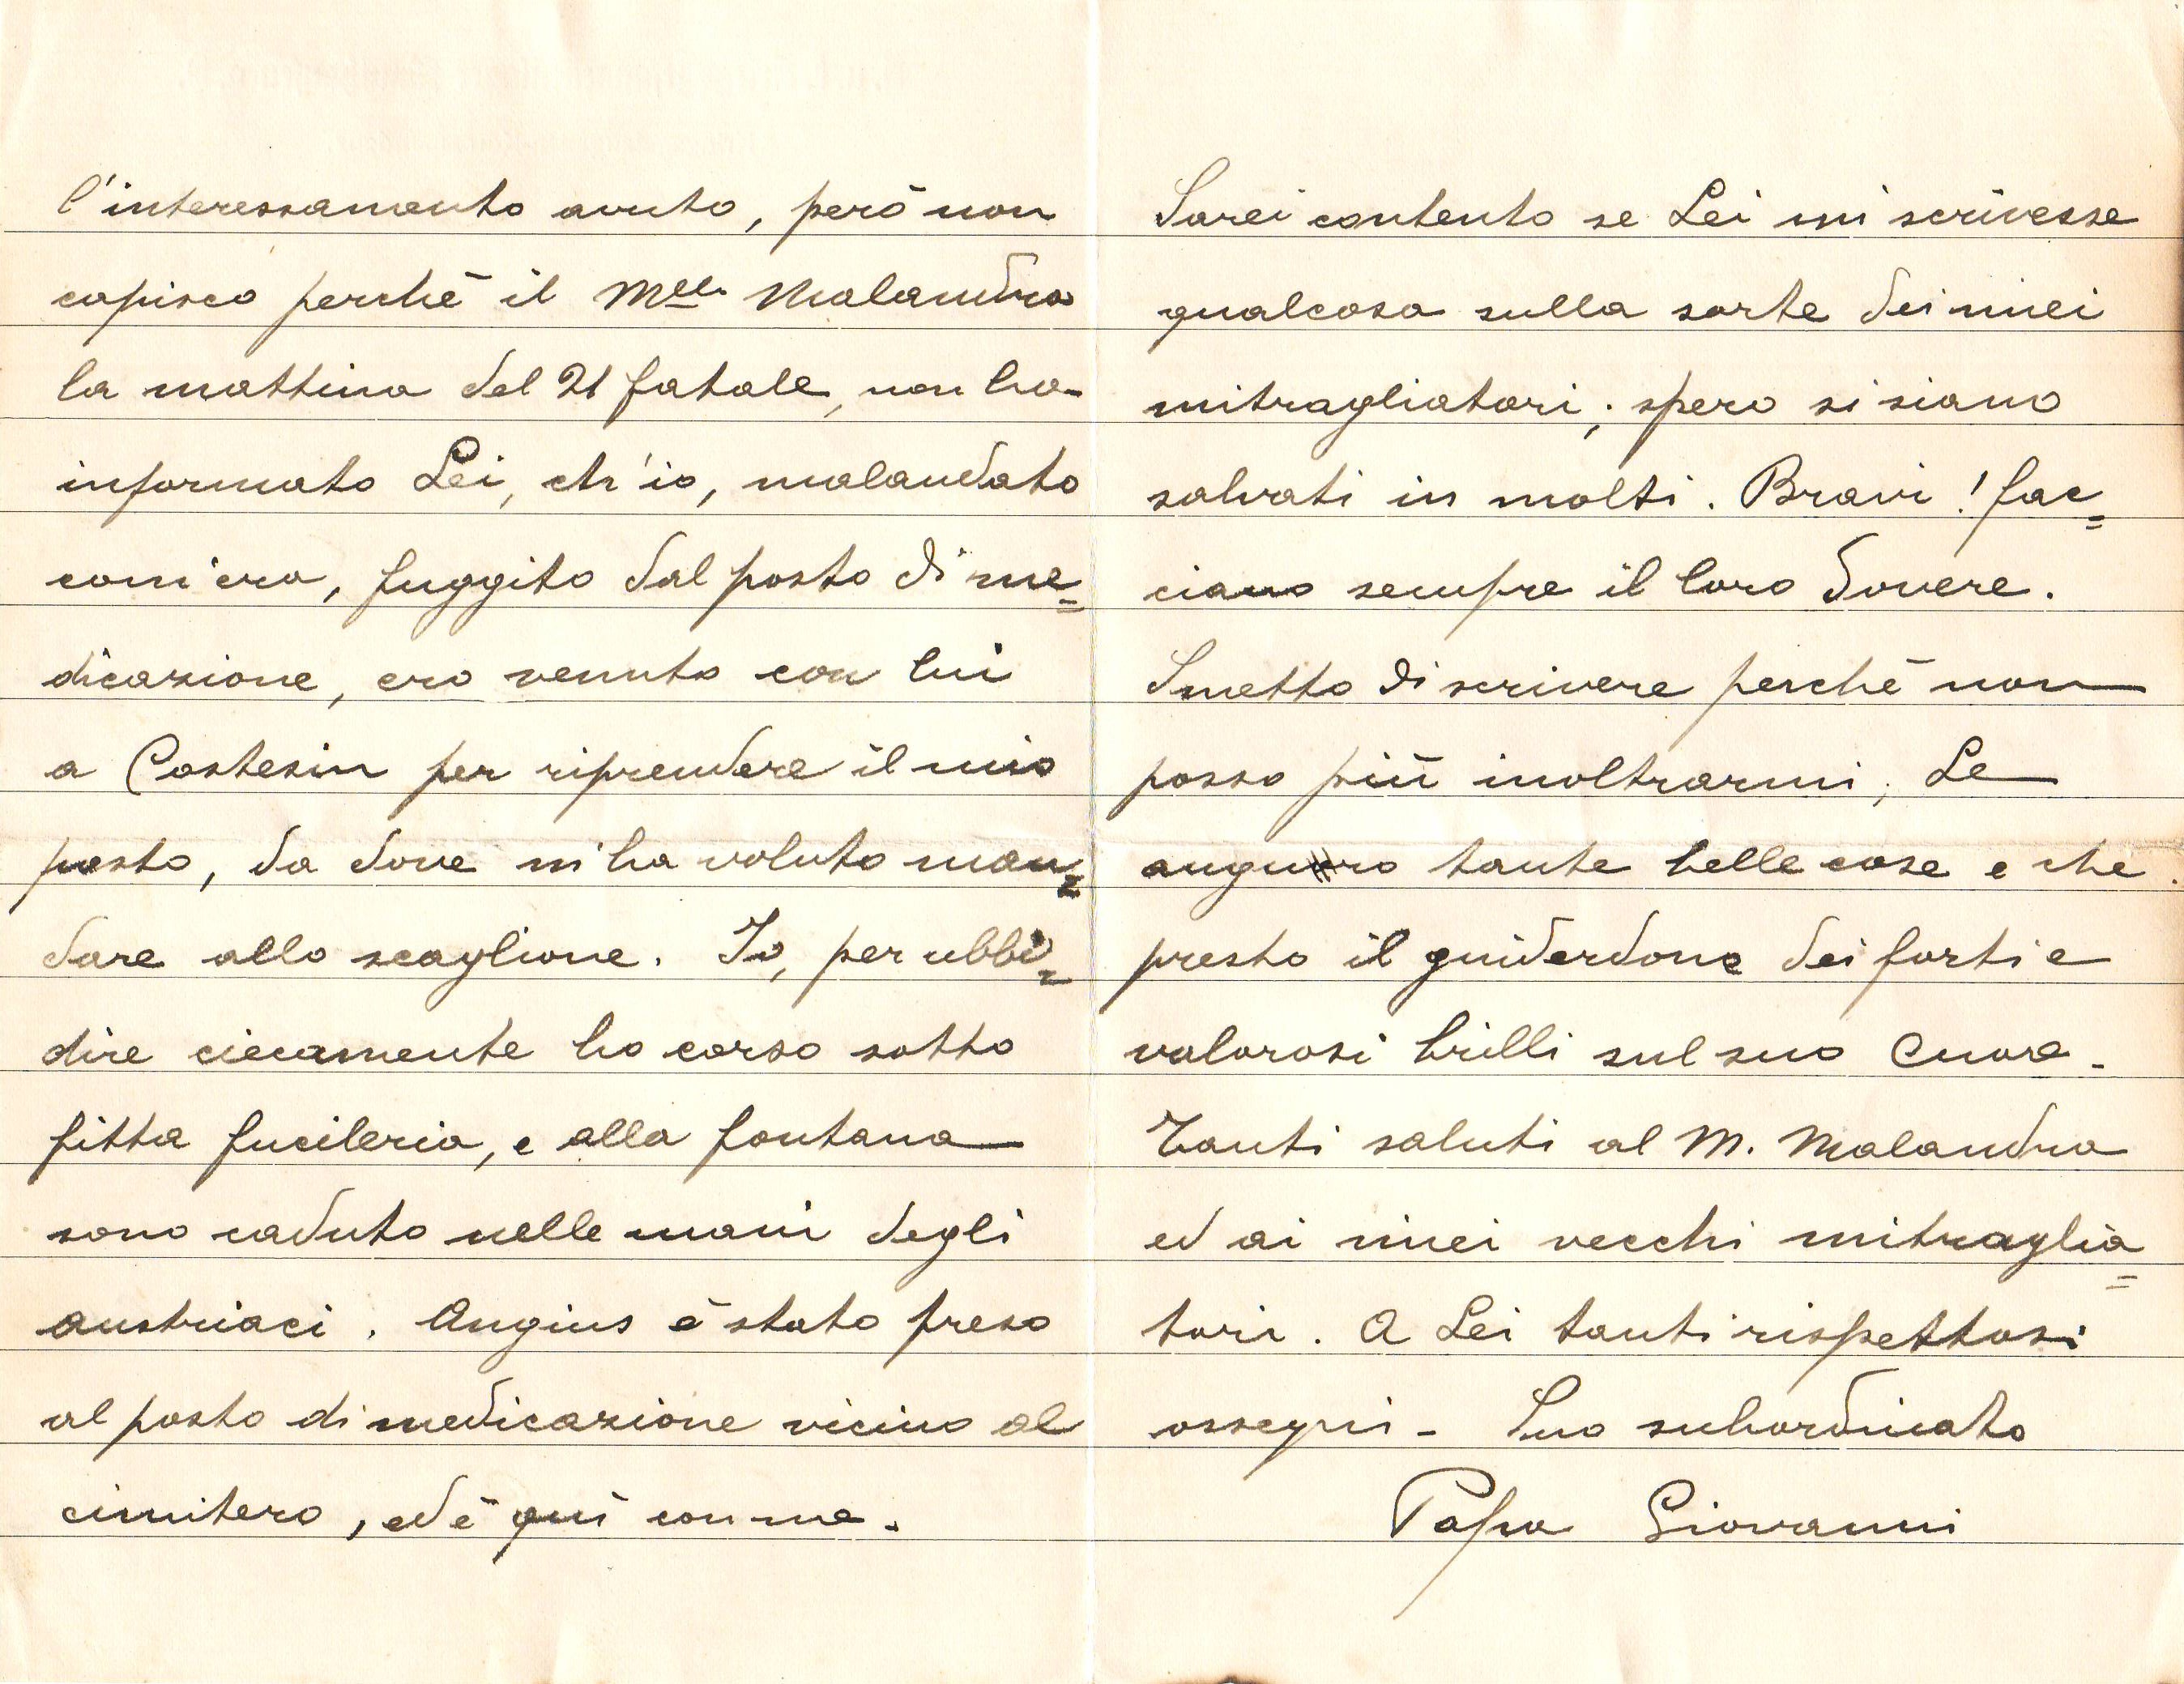 l'interessamento avuto, però non
capisco perchè il Mllo Malandra
la mattina del 21 fatale, non ha
informato Lei, ch'io, malandato
com'ero, fuggito dal posto di me=
dicazione, ero venuto con lui
a Costesin per riprendere il mio
posto, da dove m'ha voluto man=
dare allo scaglione. Io, per ubbi=
dire ciecamente ho corso sotto
fitta fucileria, e alla fontana
sono caduto nelle mani degli
austriaci. Angius è stato preso
al posto di medicazione vicino al
cimitero, ed è quì con me.
Sarei contento se Lei mi scrivesse
qualcosa sulla sorte dei miei
mitragliatori; spero si siano
salvati in molti. Bravi! fac=
ciano sempre il loro dovere.
Smetto di scrivere perchè non
posso più inoltrarmi; Le
auguro tante belle cose e che
presto il guiderdone dei forti e
valorosi brilli sul suo Cuore-
Tanti saluti al M. Malandra
ed ai miei vecchi mitraglia=
tori. A Lei tanti rispettosi
ossequi - Suo subordinato
Papa Giovanni